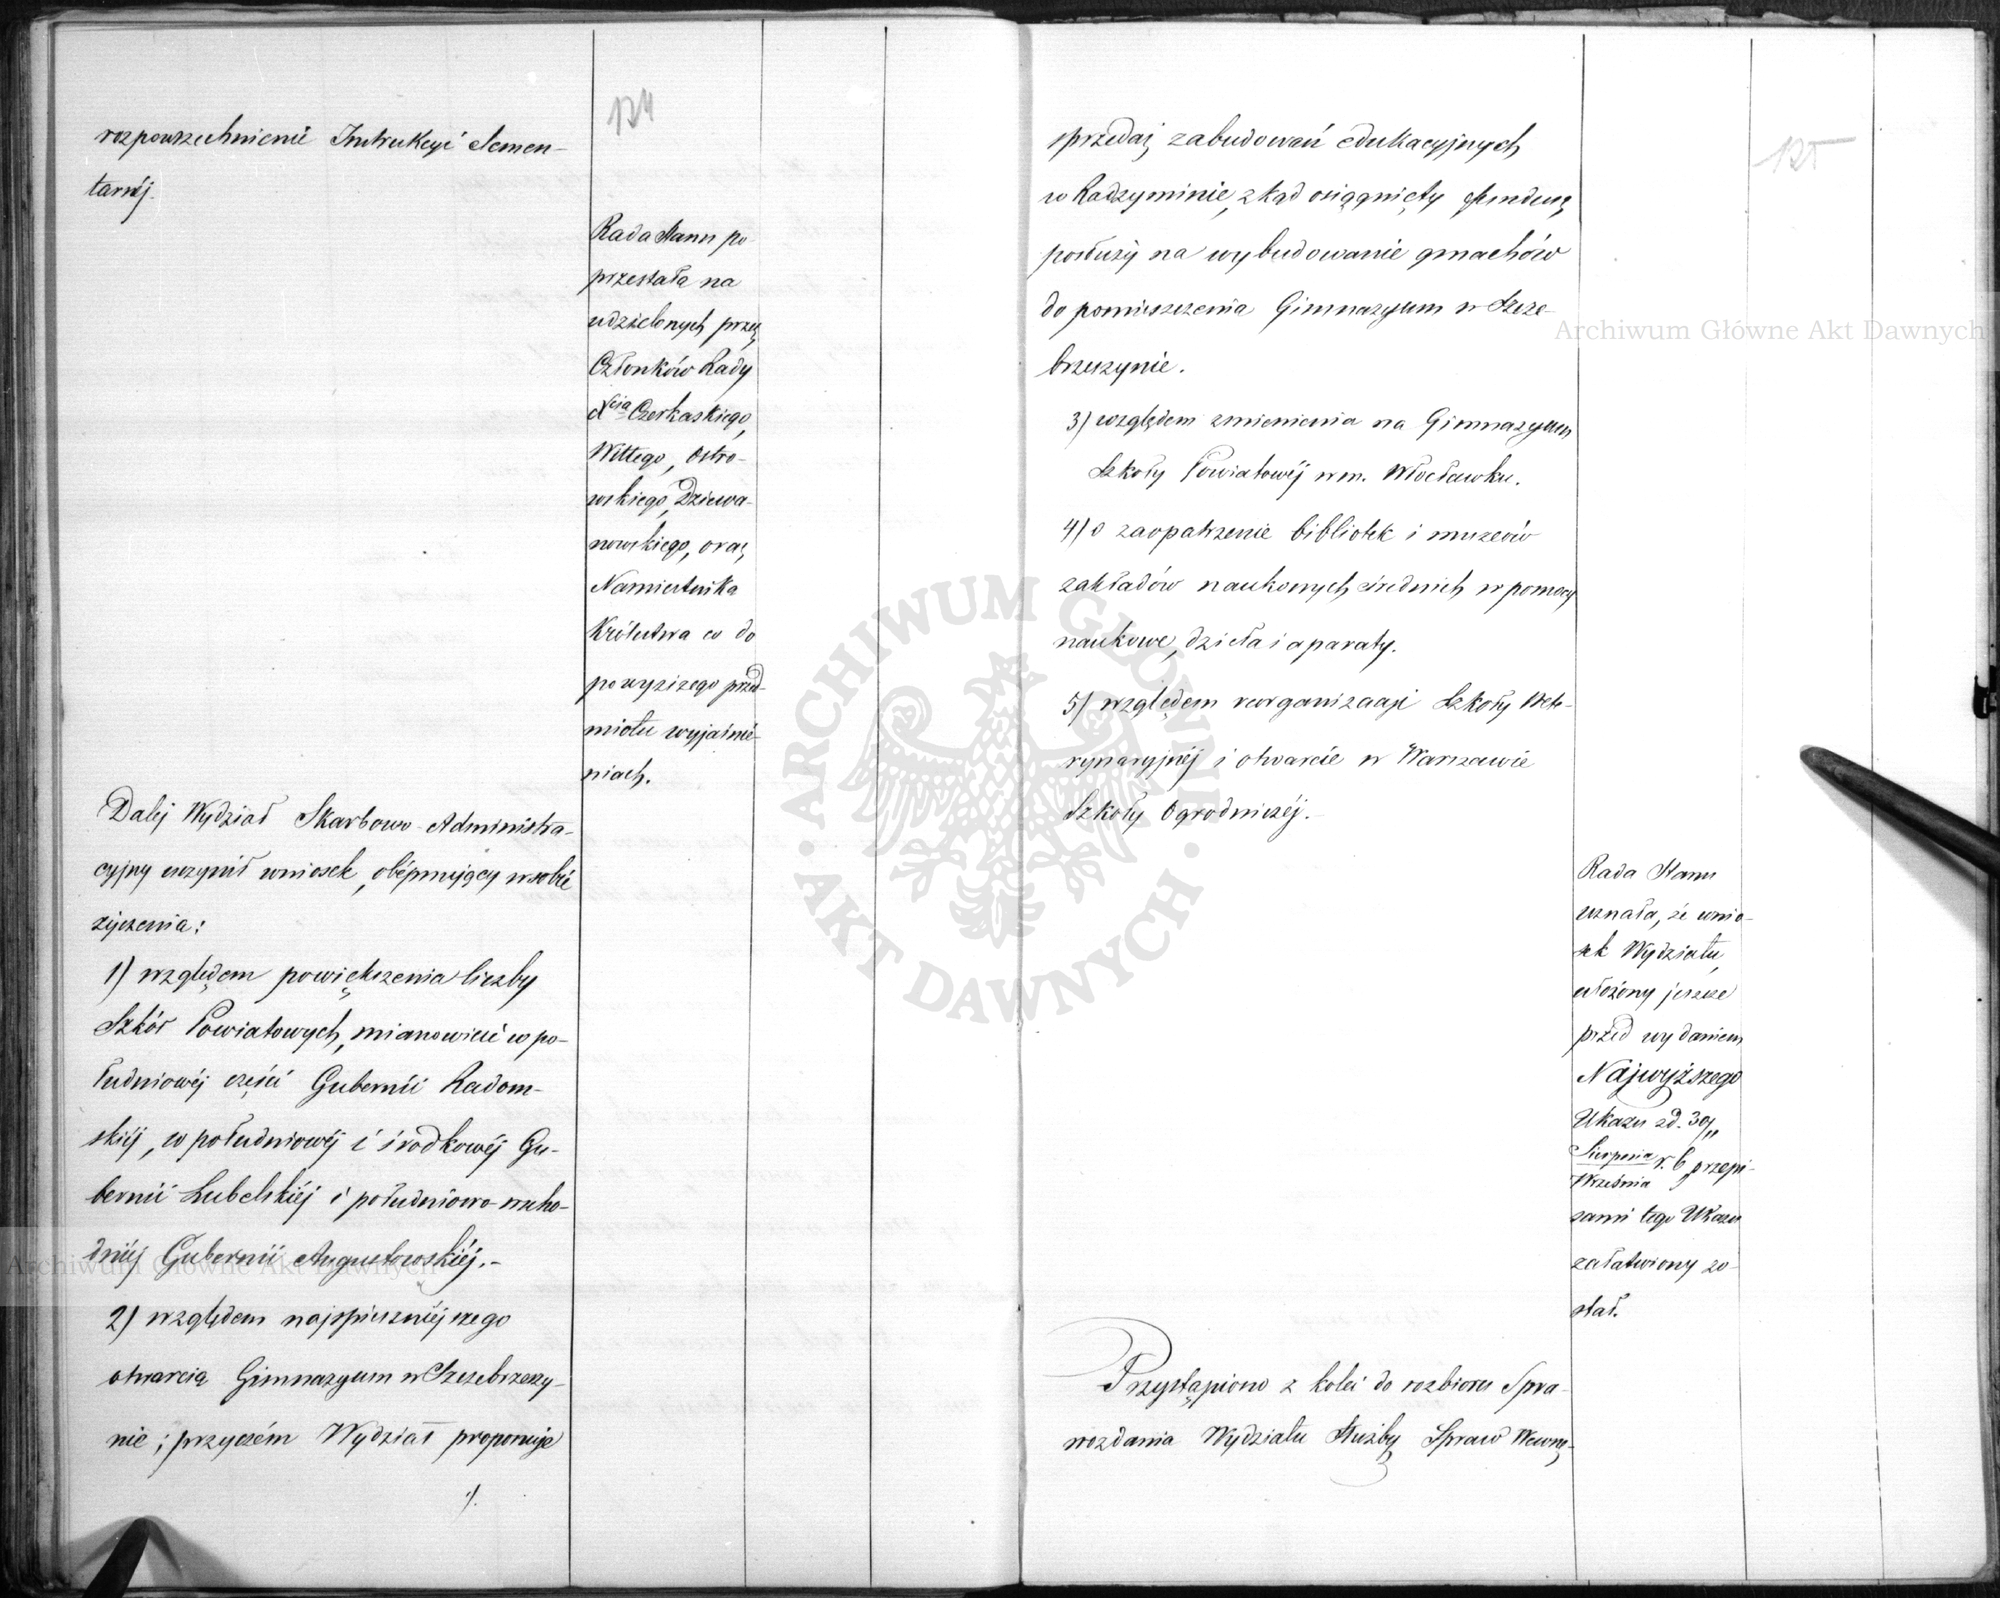 124
rozpowszechnienie Instrukcyi elemen-
tarnéj.
Rada Stanu po
przestała na
udzielonych przez
Członków Rady
Xcia Czerkaskiego,
Wittego, Ostro-
wskiego, Dziewa-
nowskiego, oraz
Namiestnika
Królestwa co do
powyższego przed-
miotu wyjaśnie-
niach.
Daléj Wydział Skarbowo-Administra-
cyjny uczynił wniosek, obéjmujący w sobie
życzenia:
1) względem powiększenia liczby
Szkół Powiatowych, mianowicie w po-
łudniowéj części Gubernii Radom-
skiéj, w południowéj i środkowéj Gu-
bernii Lubelskiéj i południowo-wscho-
dniéj Gubernii Augustowskiéj.-
2) względem najspieszniéjszego
otwarcia Gimnazyum w Szczebrzeszy-
nie; przyczém Wydział proponuje
./.
125
sprzedaż zabudowań edukacyjnych
w Radzyminie, zkąd osiągnięty fundusz
posłuży na wybudowanie gmachów
do pomieszczenia Gimnazyum w Szcze-
brzeszynie.
3) względem zmienienia na Gimnazyum
Szkoły Powiatowéj w m. Włocławku.
4) o zaopatrzenie bibliotek i muzeów
zakładów naukowych średnich w pomocy
naukowe, dzieła i aparaty.
5) względem reorganizacyi Szkoły Wete-
rynaryjnéj i otwarcie w Warszawie
Szkoły Ogrodniczéj.-
Rada Stanu
uznała, że wnio-
sek Wydziału,
ułożony jeszcze
przed wydaniem
Najwyższego
Ukazu z d. 30/11
Sierpnia/Września r. b przepi-
sami tego Ukazu
załatwiony zo-
stał.
Przystąpiono z kolei do rozbioru Spra-
wozdania Wydziału Służby Spraw Wewnę-
Archiwum Główne Akt Dawnych
Archiwum Główne Akt Dawnych
ARCHIWUM GŁÓWNE AKT DAWNYCH